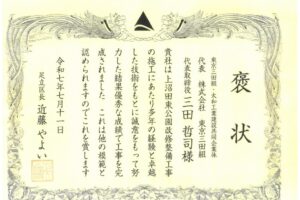 褒状
東京三田組 大和工業建設共同企業体
代表 株式会社 東京三田組
代表取締役 三田 哲司様
貴社は上沼田東公園改修整備工事
の施工にあたり多年の経験と卓越
した技術をもとに誠意をもって努
力した結果優秀な成績で工事を完
成されました これは他の模範と
認められますのでこれを賞します
令和七年七月十一日
足立区長 近藤 やよい